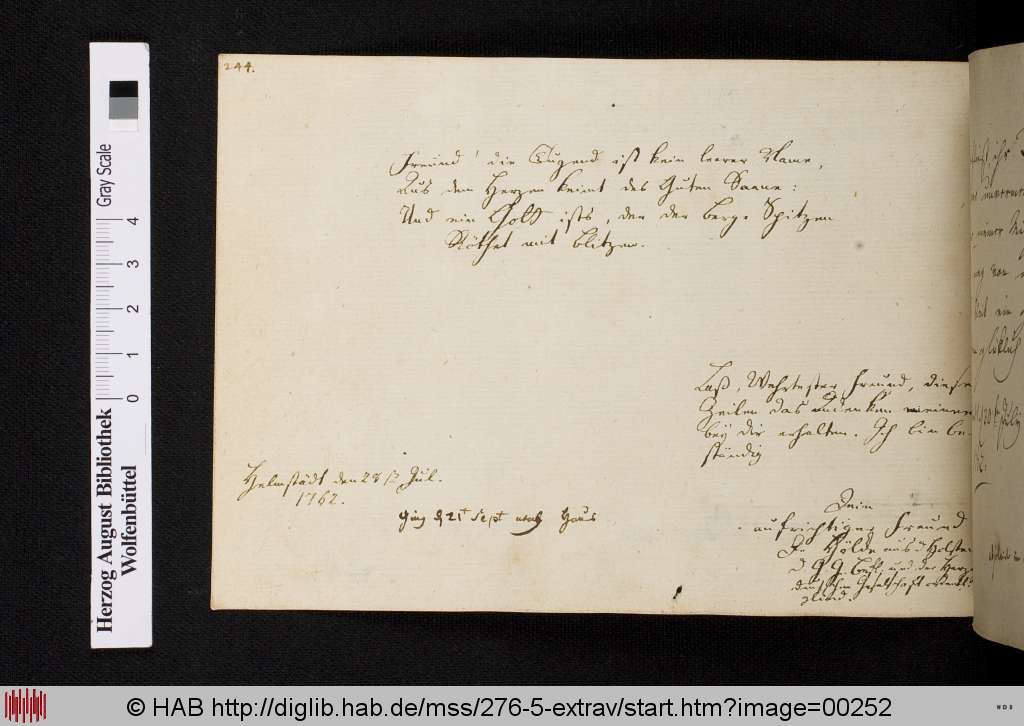 244.
Freünd! die Tugend ist kein leerer Name,
Aus dem Herzen keimt des Guten Saame:
Und ein Gott ists, der der berge Spitzen
Röthet mit blitzen.
Laß, Wehrtester Freund, diese
Zeilen das andenken meiner
bey dir erhalten. Ich bin be-
ständig
Helmstädt den 28 Jul.
1762.
Dein
aufrichtiger Freund
aus Holstein
d. G. G. und der Herz.
deutschen Gesellschaft
Glied.
ging d 21t Sept nach Haus
Herzog August Bibliothek
Wolfenbüttel
Gray Scale
0 1 2 3 4
© HAB http://diglib.hab.de/mss/276-5-extrav/start.htm?image=00252